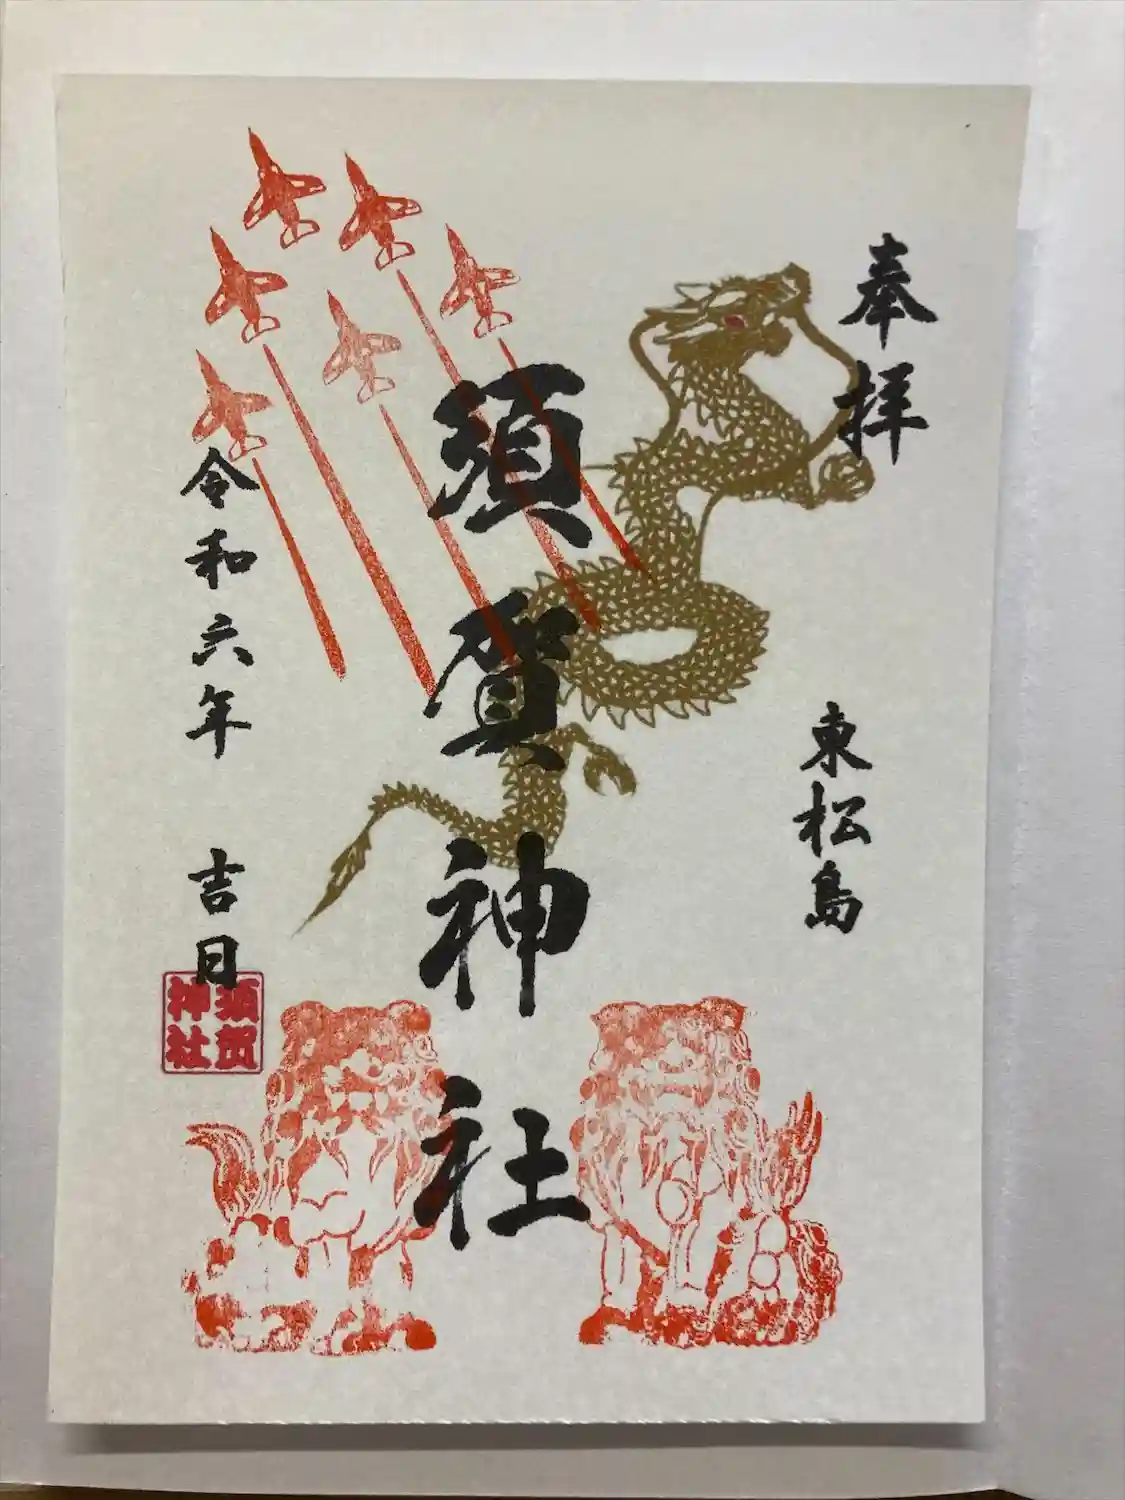 奉拝
東松島
須賀神社
令和六年 吉日
須賀
神社